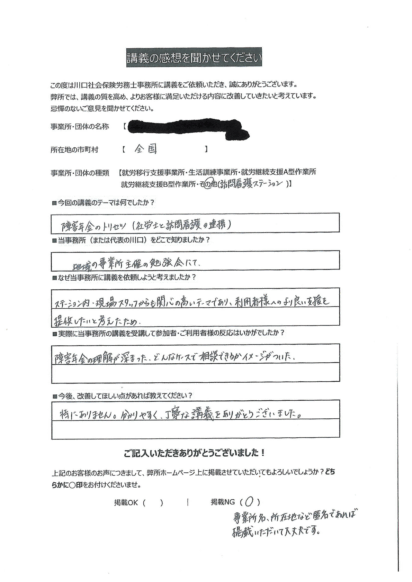 講義の感想を聞かせてください
この度は川口社会保険労務士事務所に講義をご依頼いただき、誠にありがとうございます。
弊所では、講義の質を高め、よりお客様に満足いただける内容に改善していきたいと考えています。
忌憚のないご意見を聞かせてください。
事業所・団体の名称 【
所在地の市町村 【 全国 】
事業所・団体の種類 【就労移行支援事業所・生活訓練事業所・就労継続支援A型作業所
就労継続支援B型作業所・その他(訪問看護ステーション)】
■今回の講義のテーマは何でしたか?
障害年金のトリセツ (社労士と訪問看護の連携)
■当事務所(または代表の川口)をどこで知りましたか?
地域の事業所主催の勉強会にて.
■なぜ当事務所に講義を依頼しようと考えましたか?
ステーション内・現場スタッフからも関心の高いテーマであり、利用者様へのより良い支援を
提供したいと考えたため.
■実際に当事務所の講義を受講して参加者・ご利用者様の反応はいかがでしたか?
障害年金の理解が深まった、どんなケースで相談できるかイメージがついた.
■今後、改善してほしい点があれば教えてください?
特にありません。分かりやすく、丁寧な講義をありがとうございました。
ご記入いただきありがとうございました!
上記のお客様のお声につきまして、弊所ホームページ上に掲載させていただいてもよろしいでしょうか?どち
らかに〇印をお付けくださいませ。
掲載OK ( ) 掲載NG (〇)
事業所名、所在地など匿名であれば
掲載いただいて大丈夫です。